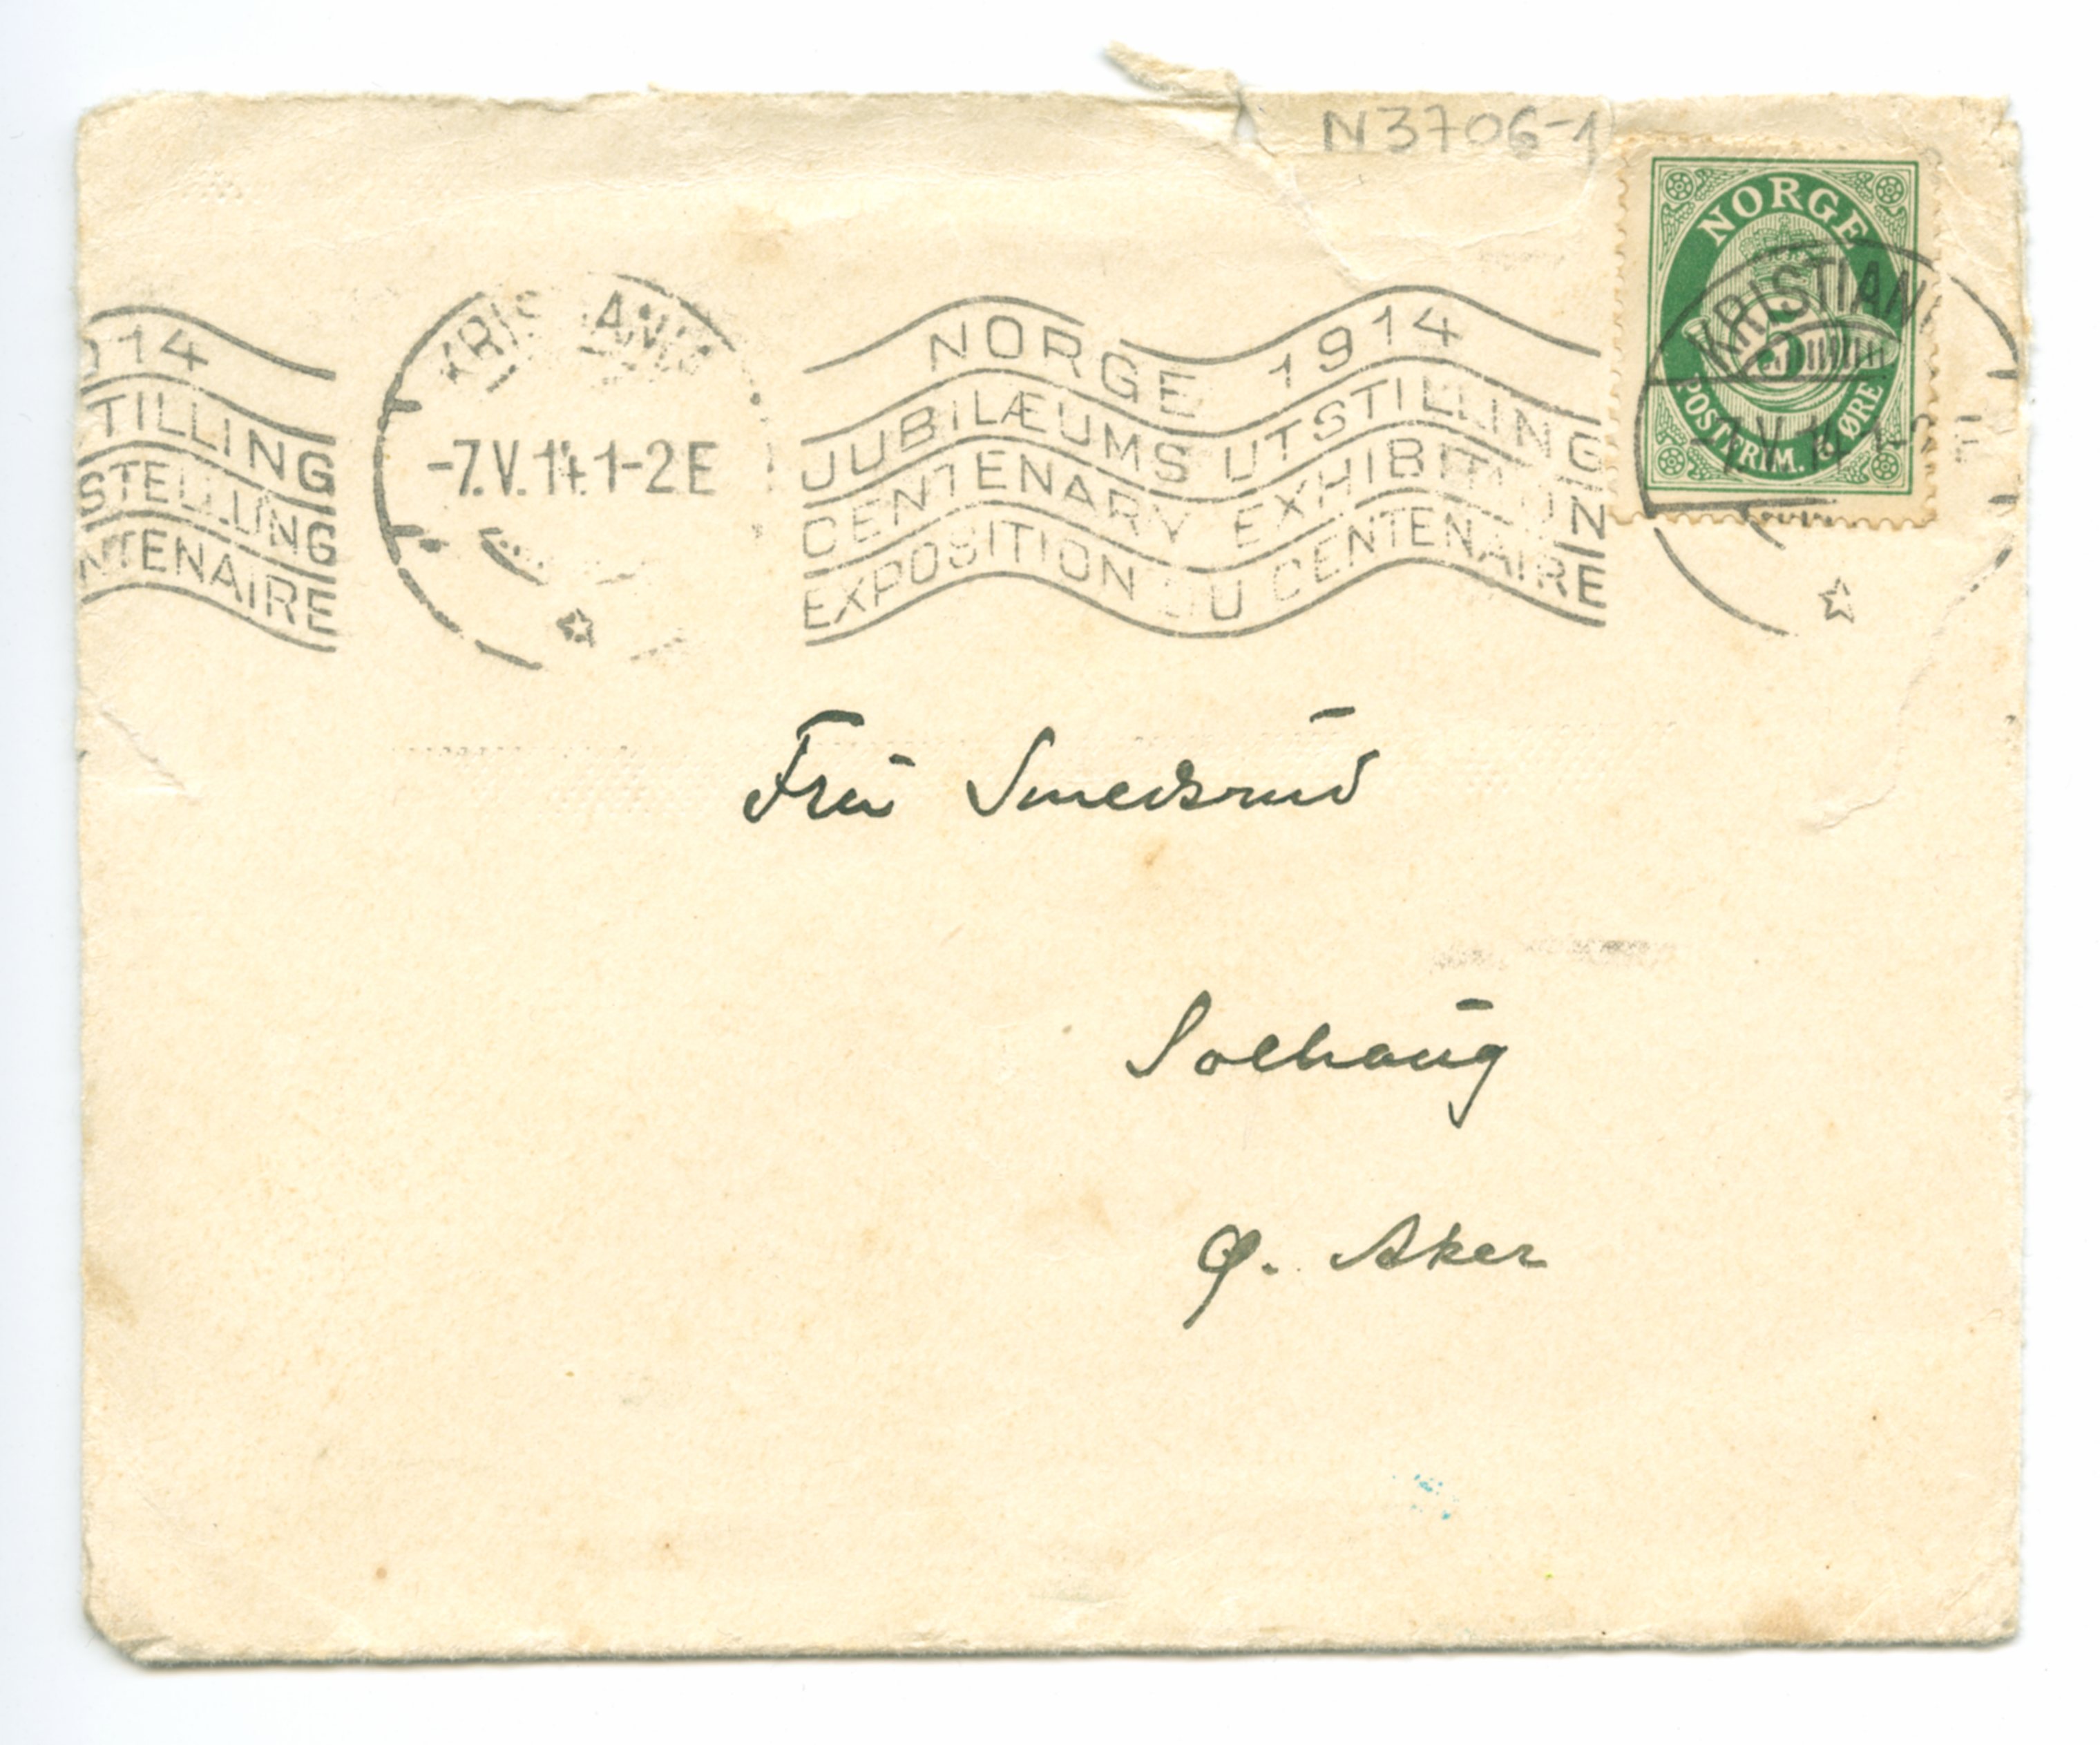 N3706-1
NORGE
5
POSTFRIM. ØRE
914
TILLING
STELLUNG
NTENAIRE
KRISTIANIA
-7.V.14.1-2E
NORGE 1914
JUBILÆUMS UTSTILLING
CENTENARY EXHIBITION
EXPOSITION DU CENTENAIRE
KRISTIAN
-7.V.14.1-2 E
Frū Smedsrūd
Solhaūg
Ø. Aker